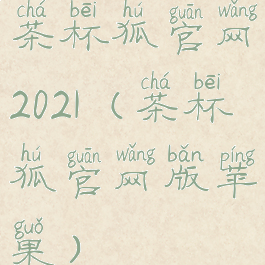 chá bēi hú guān wǎng
茶杯狐官网
chá bēi
2021（茶杯
hú guān wǎng bǎn píng
狐官网版苹
guǒ
果）